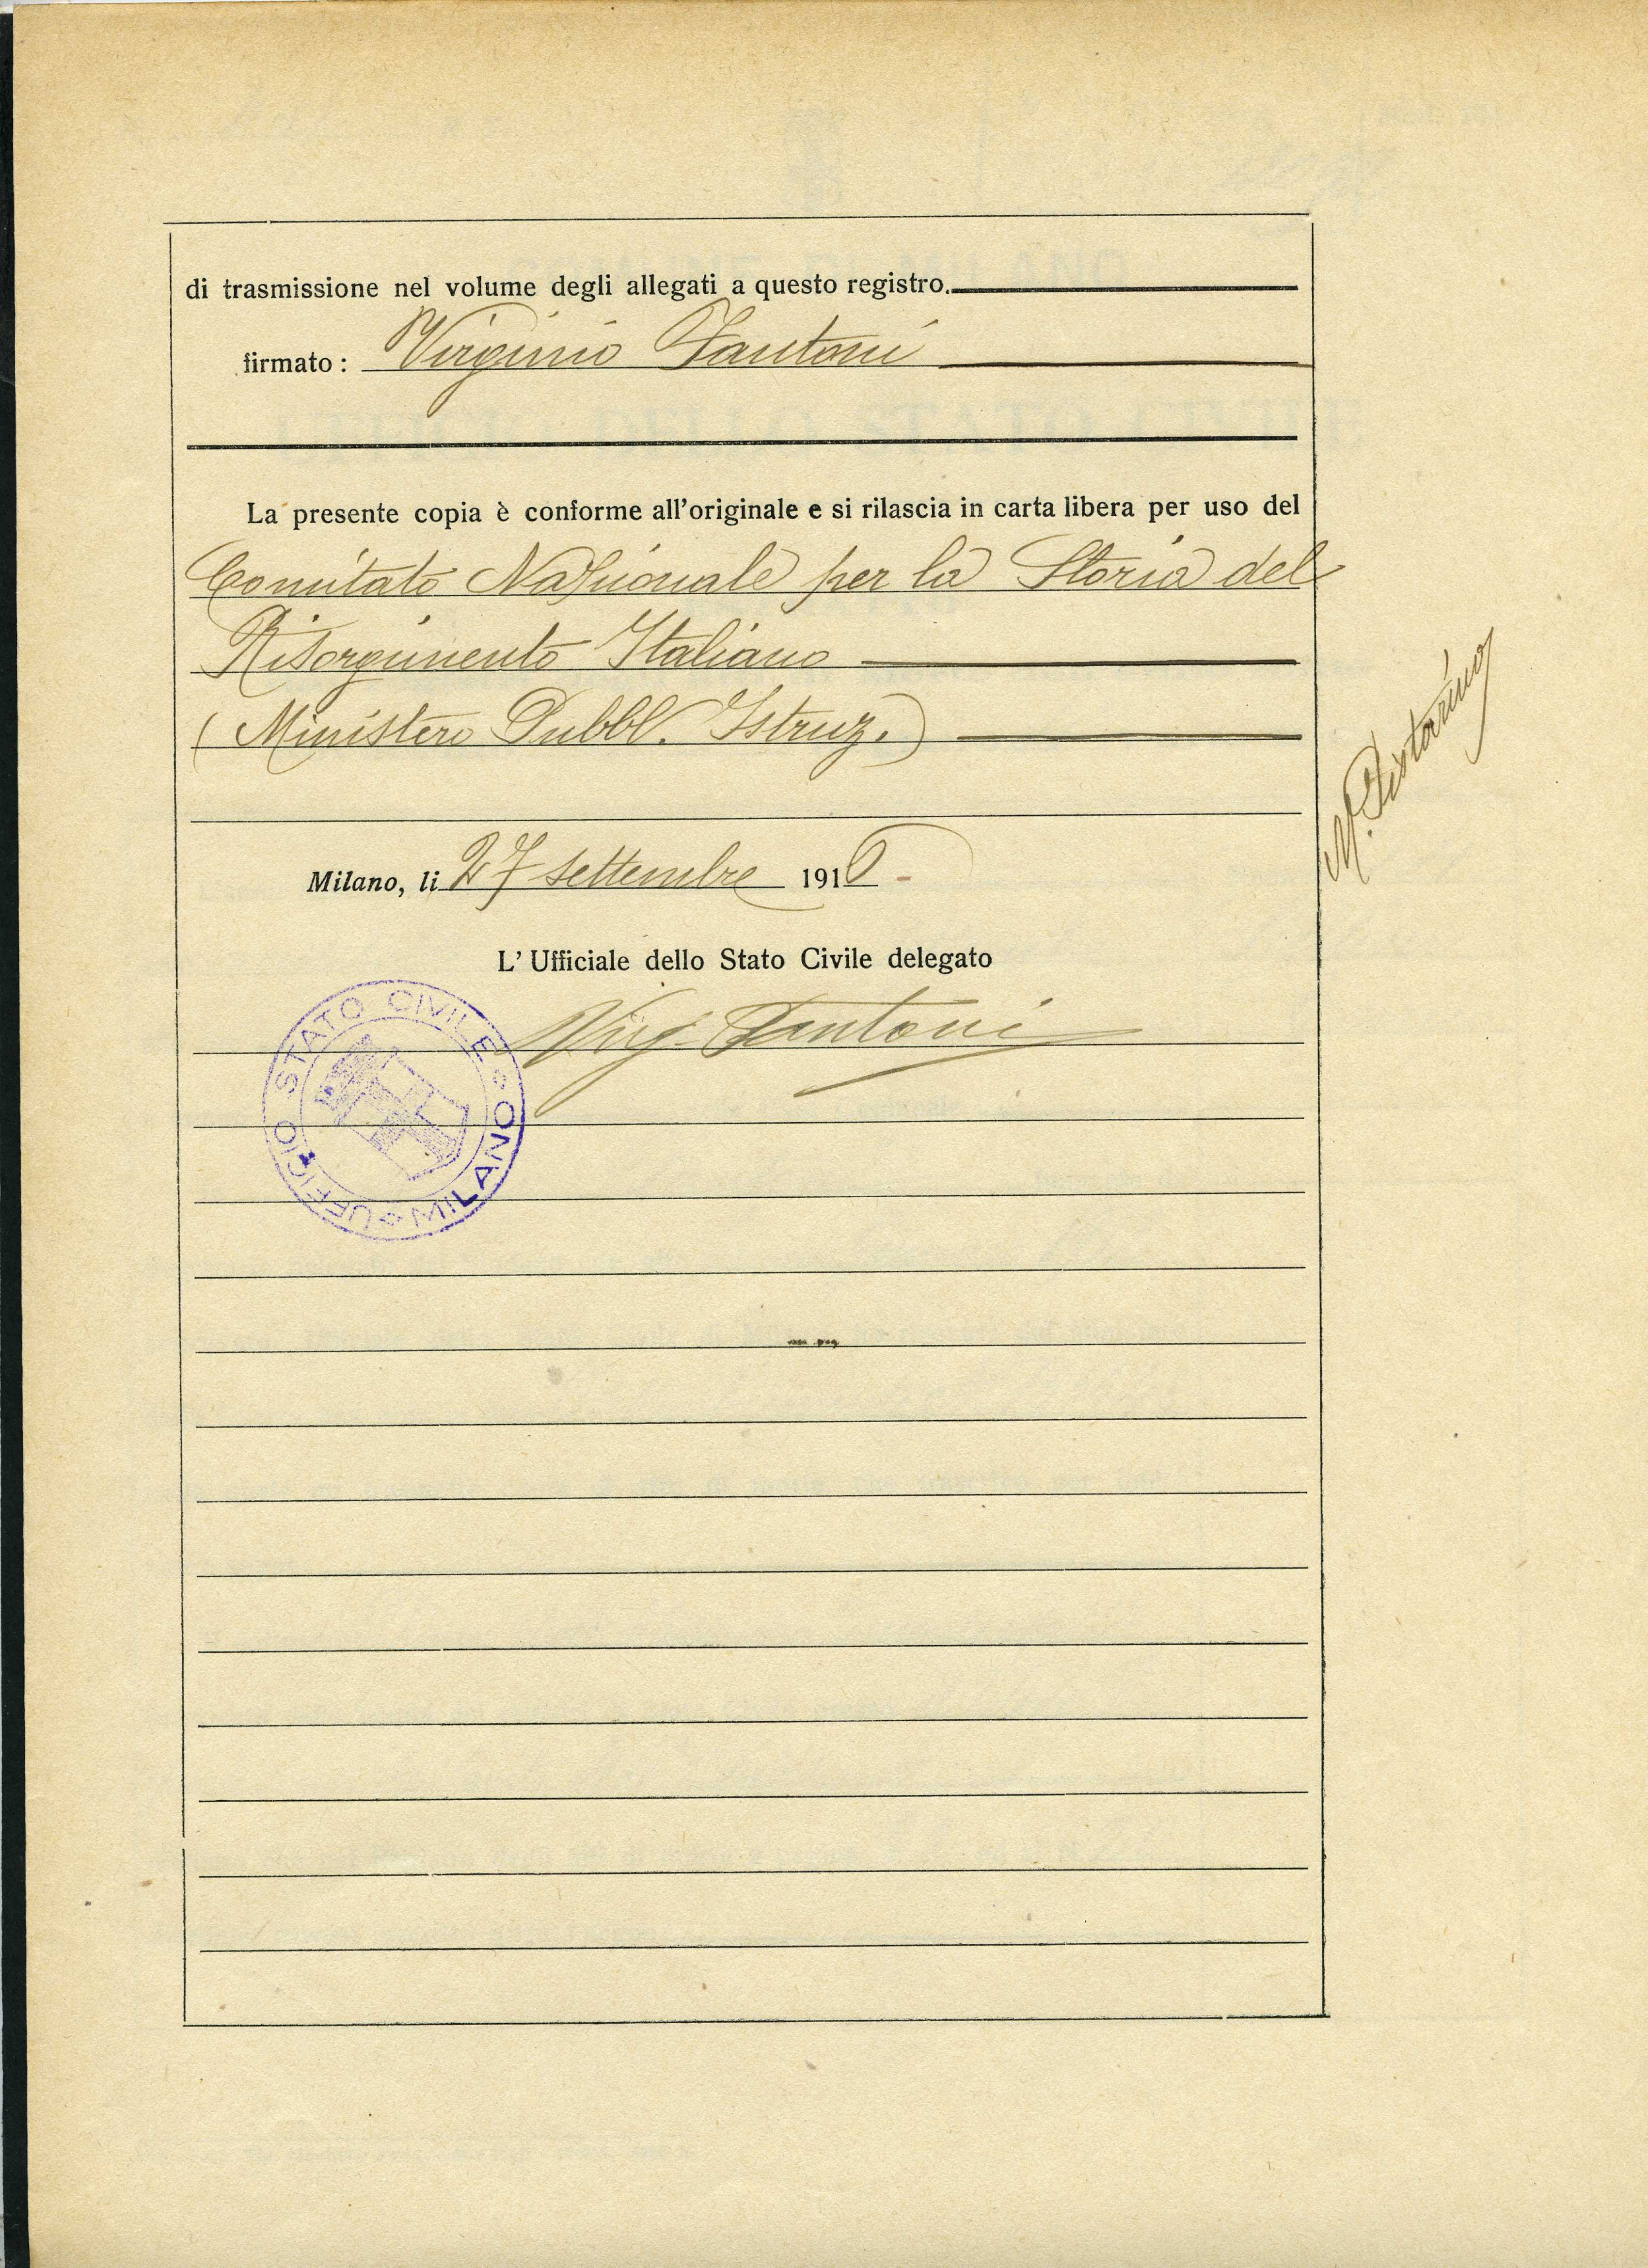 di trasmissione nel volume degli allegati a questo registro.
firmato: Virginio Fantoni
La presente copia è conforme all'originale e si rilascia in carta libera per uso del
Comitato Nazionale per la Storia del
Risorgimento Italiano
(Ministero Pubbl. Istruz.)
Milano, li 27 settembre 1916
L'Ufficiale dello Stato Civile delegato
Virg. Fantoni
UFFICIO STATO CIVILE MILANO
M. Pistarino